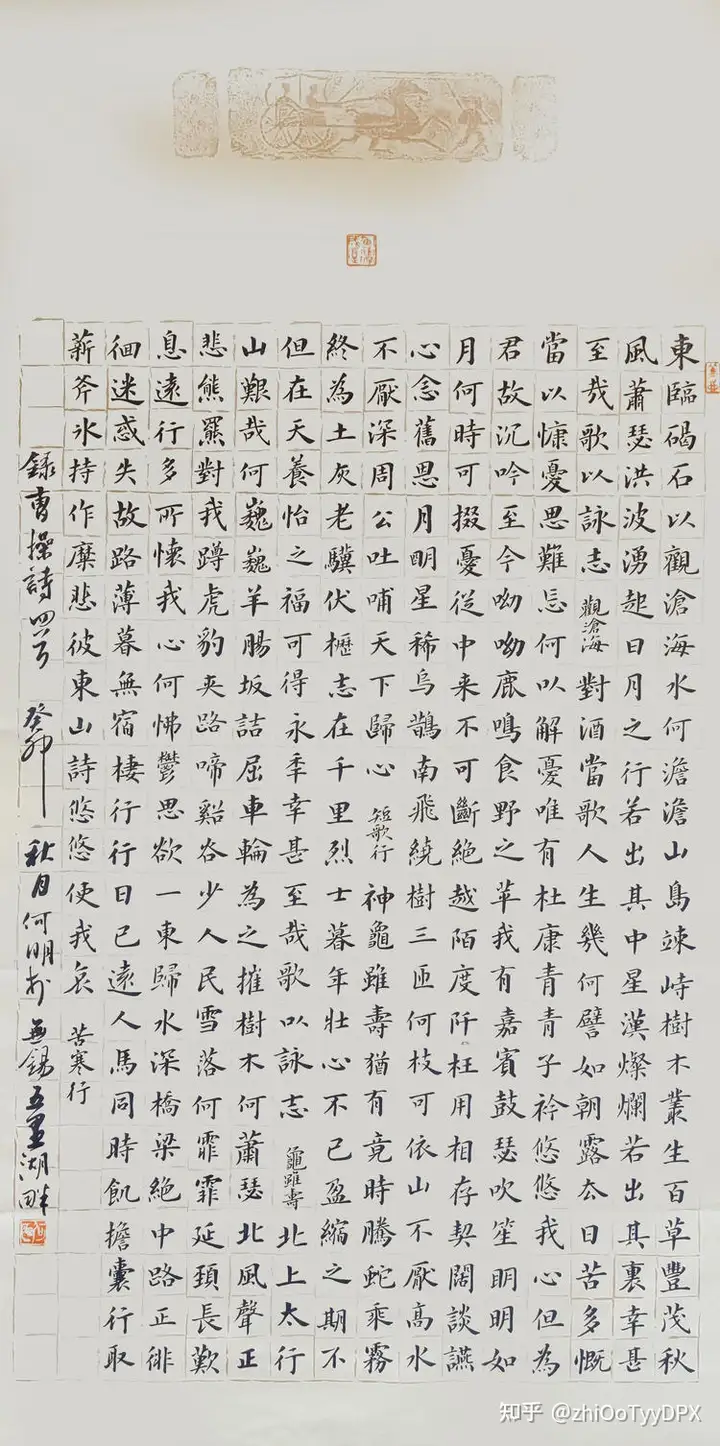 東臨碣石以觀滄海水何澹澹山島竦峙樹木叢生百草豐茂秋
風蕭瑟洪波湧起日月之行若出其中星漢燦爛若出其裏幸甚
至哉歌以詠志 觀滄海 對酒當歌人生幾何譬如朝露去日苦多慨
當以慷憂思難忘何以解憂唯有杜康青青子衿悠悠我心但為
君故沉吟至今呦呦鹿鳴食野之苹我有嘉賓鼓瑟吹笙明明如
月何時可掇憂從中来不可斷絕越陌度阡枉用相存契闊談讌
心念舊恩月明星稀烏鵲南飛繞樹三匝何枝可依山不厭高水
不厭深周公吐哺天下歸心 短歌行 神龜雖壽猶有竟時騰蛇乘霧
終為土灰老驥伏櫪志在千里烈士暮年壯心不已盈縮之期不
但在天養怡之福可得永年幸甚至哉歌以詠志 龜雖壽 北上太行
山艱哉何巍巍羊腸坂詰屈車輪為之摧樹木何蕭瑟北風聲正
悲熊羆對我蹲虎豹夾路啼谿谷少人民雪落何霏霏延頸長歎
息遠行多所懷我心何怫鬱思欲一東歸水深橋梁絕中路正徘
徊迷惑失故路薄暮無宿棲行行日已遠人馬同時飢擔囊行取
薪斧冰持作糜悲彼東山詩悠悠使我哀 苦寒行
錄曹操詩四首 癸卯秋月何明於無錫五里湖畔
知乎 @zhiOoTyyDPX